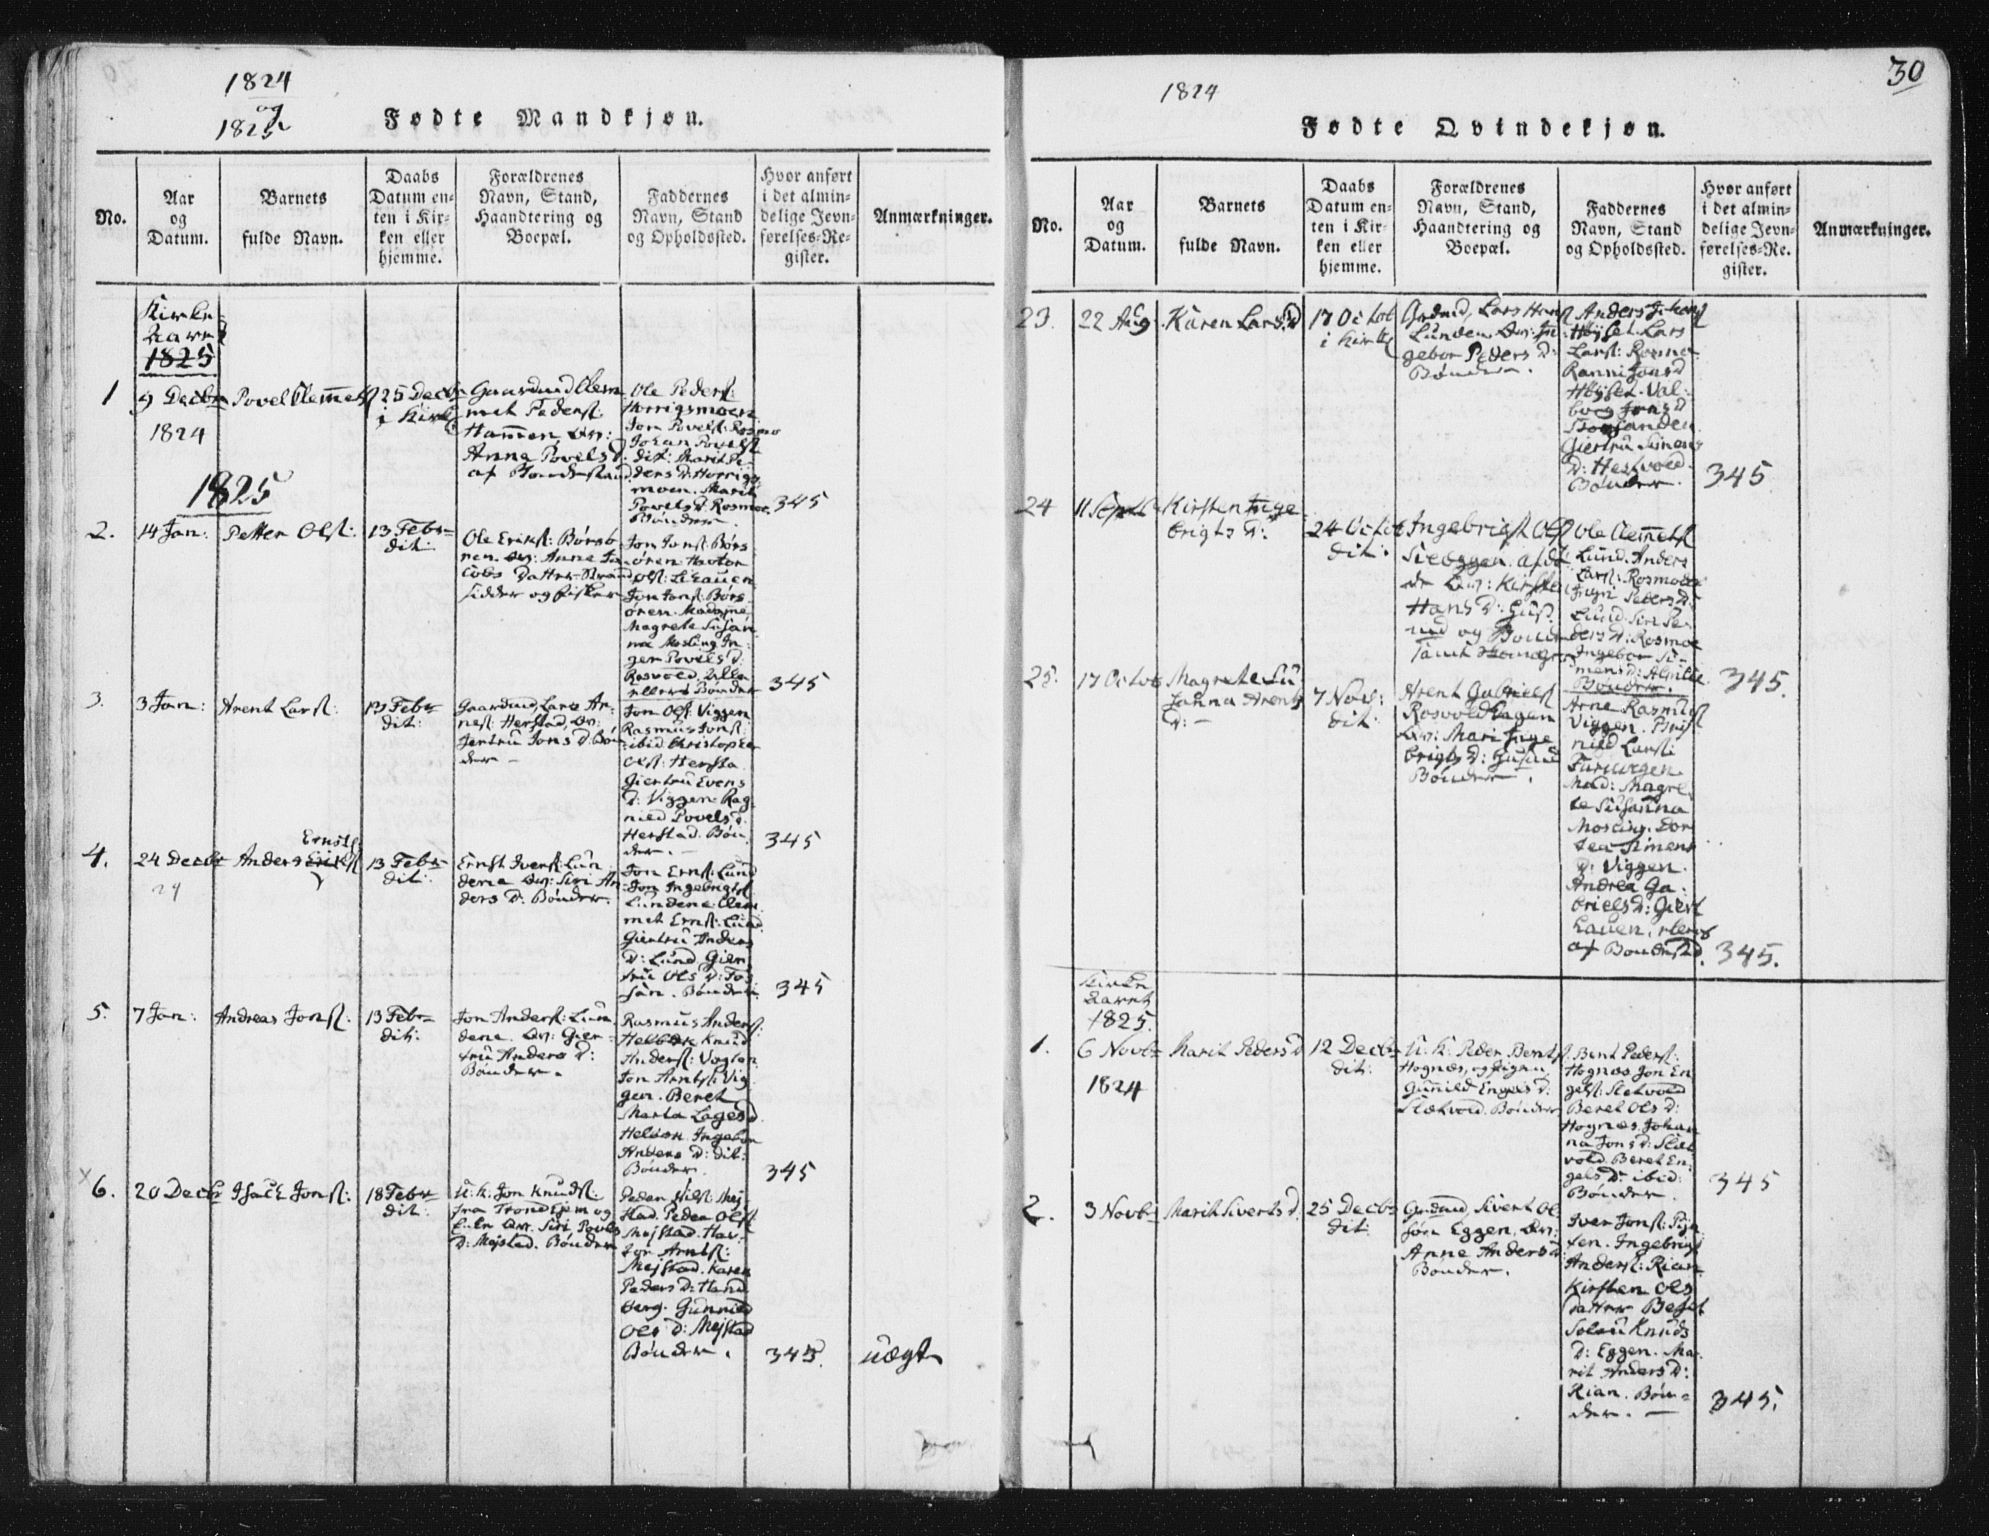 1824
og
1825
Fødte Mandkjøn.
No.
Aar
og
Datum.
Barnets
fulde Navn.
Daabs
Datum en-
ten i Kir-
ken eller
hjemme.
Forældrenes
Navn, Stand,
Haandtering og
Boepæl.
Faddernes
Navn, Stand
og Opholdssted.
Hvor anført
i det almin-
delige Jevn-
førelses-Re-
gister.
Anmærkninger.
Kirke
Aaret
1825
1
9 Decbr
1824
Povel Clemets
25 Decbr
i Kirk
Gaardmd Clem
met Peders:
Hammen, Qv:
Anna Povels D:
af Bondestand
Ole Peders:
Horrigsmoen
Jon Povels: Rosmo
Johan Povels
dit: Marit Pe-
ders D: Horrigs
moen. Marit
Povels D: Rosmoe
Bønder.
345
1825
2.
14 Jan:
Petter Ols:
13 Febr
dit:
Ole Eriks: Børsø
ren. Qv: Anne Ja-
cobs Datter Strand
sidder og fisker
Jon Jons: Børs
øren
Ols:
Jon Jons: Børs
øren. Madame
Magrete Susan
na Mosling In-
ger Povels D:
Rosvold
Bønder
345
3.
3 Jan:
Arent Lars:
13 Febr
dit:
Gaardmd Lars Ar-
nes: Herstad, Qv:
Jertru Jons D: Bøn
der
Jon Ols: Viggen
Rasmus Jons:
ibid Christopher
Ols: Hersta
Giertru Evens
D: Viggen. Rag-
nild Povels D:
Herstad. Bøn
der.
345
4.
24 Decbr
24
Anders Eriks
Ernsts
13 Febr
dit:
Ernst Ivers: Lun
dene Qv: Siri An
ders D: Bønder.
Jon Ernst: Lund
Jon Ingebrigts
Lundene. Clem
met Ernst: Lund
Giertru Anders
D: Lund Gier
tru Ols D: Fos
san. Bønder.
345
5.
7 Jan:
Andreas Jons:
13 Febr
dit:
Jon Anders: Lun
dene. Qv: Gier-
tru Anders D:
Bønder.
Rasmus Anders:
Helbek Knud
Anders: Vogten
Jon Arnts: Vig
gen. Beret
Marta Lages D
Helbek Ingebor
Anders D: dit:
Bønder.
345
6.
20 Decbr
Isack Jons:
18 Febr
dit:
U: K: Jon Knuds:
fra Trondhjem og
Qv: Siri Povels
D: Mejstad. Bønder
Peder Nils: Mej
stad. Peder Ols
Mejstad. Hav-
tor Arnts:
Mejstad. Karen
Peders D: Hand
berg. Gunnild
Ols D: Mejstad
Bønder.
345
uægte
30
1824
Fødte Qvindekjøn.
No.
Aar
og
Datum.
Barnets
fulde Navn.
Daabs
Datum en-
ten i Kir-
ken eller
hjemme.
Forældrenes
Navn, Stand,
Haandtering og
Boepæl.
Faddernes
Navn, Stand
og Opholdssted.
Hvor anført
i det almin-
delige Jevn-
førelses-Re-
gister.
Anmærkninger.
23.
22 Aug
Karen Lars D
17 Octob
i Kirk
Grdmd, Lars Hans
Lunden Qv: In
gebor Peders D:
Bønder.
Anders Johans
Høyset Lars
Lars: Rosmo
Ranni Jons D
Høyset. Val-
borg Jons D
Giertru Simens
D: Hestvold.
Bønder.
345
24
11 Septb
Kirsten Inge
brigts D:
24 Octob
dit:
Ingebrigt Ols
Sieeggen
Qv: Kirsten
Hans D:
og Bønd
Ole Clemets
Lund. Anders
Lars: Rosmoen
Peders D:
Lund. Siri Pe-
ders D: Rosmoe
Ingebor Si-
mens D:
Bønder.
345.
25.
17 Octob
Magrete Su
sanna Arents
D:
7 Nov:
dit:
Arent Gabriels
Rosvoldhagen
Qv: Mari Inge
brigts D:
Bønder.
Arne Rasmus
Viggen.
nild Lars
Furuvegen
Mad: Magre
te Susanna
Mosling. Dor
tea Simens
D: Viggen.
Andrea Ga-
briels D:
af Bondestd
345.
Kirke
Aaret
1825.
1.
6 Novb
1824
Marit Peders D
12 Decb
dit:
U: K: Peder Bents
Hognæs, og Pigen
Gunnild Engels D:
Sletvold. Bønder
Bent Peders:
Hognæs Jon En
gels: Sletvold
Beret Ols D:
Hognæs. Johan
na Jons D: Slet
vold. Beret En-
gels D: ibid:
Bønder.
345
2.
3 Novb
Marit Siverts D.
25 Decb
dit:
Grdmd Sivert Ol
søn Eggen, Qv:
Anne Anders D
Bønder.
Iver Jons:
Ingebrigt
Anders: Rian
Kirsten Ols
Datter
Knuds
D: Eggen. Ma-
rit Anders D:
Rian. Bøn-
der.
345.